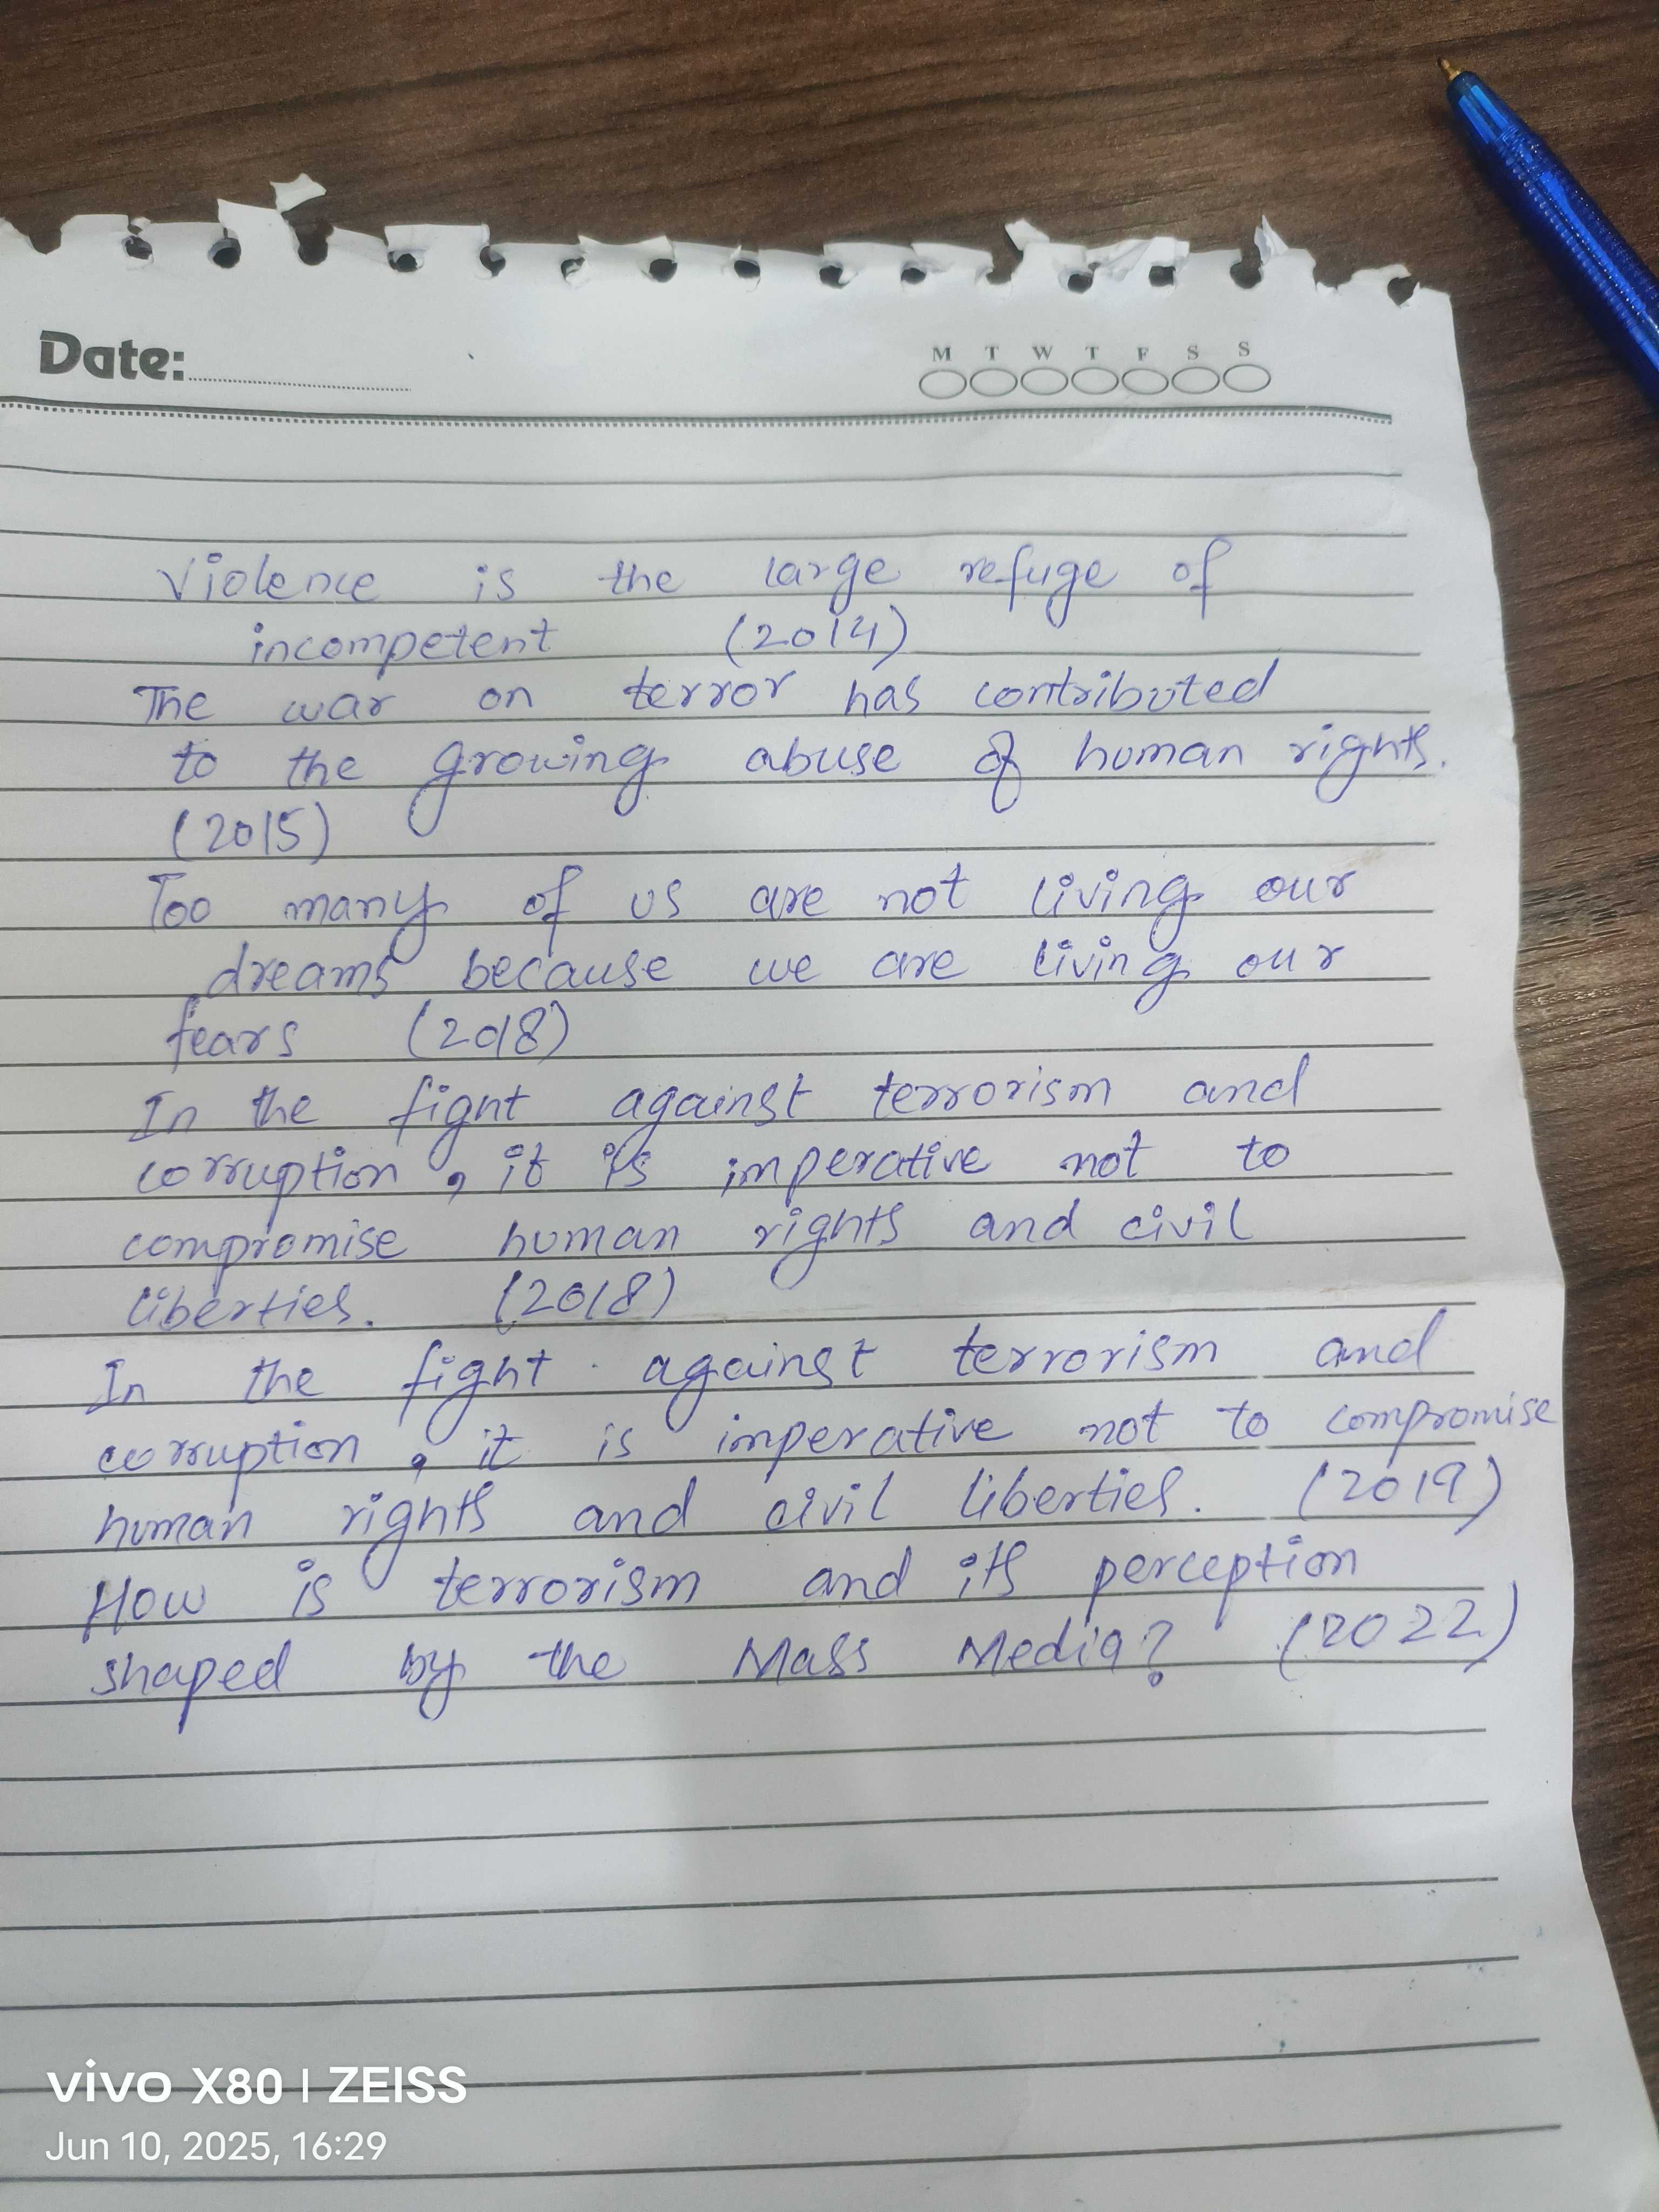 Date:
M T W T F S S
Violence is the large refuge of
incompetent (2014)
The war on terror has contributed
to the growing abuse of human rights.
(2015)
Too many of us are not living our
dreams because we are living our
fears (2018)
In the fight against terrorism and
corruption, it is imperative not to
compromise human rights and civil
liberties. (2018)
In the fight against terrorism and
corruption, it is imperative not to compromise
human rights and civil liberties. (2019)
How is terrorism and its perception
shaped by the Mass Media? (2022)
vivo X80 | ZEISS
Jun 10, 2025, 16:29